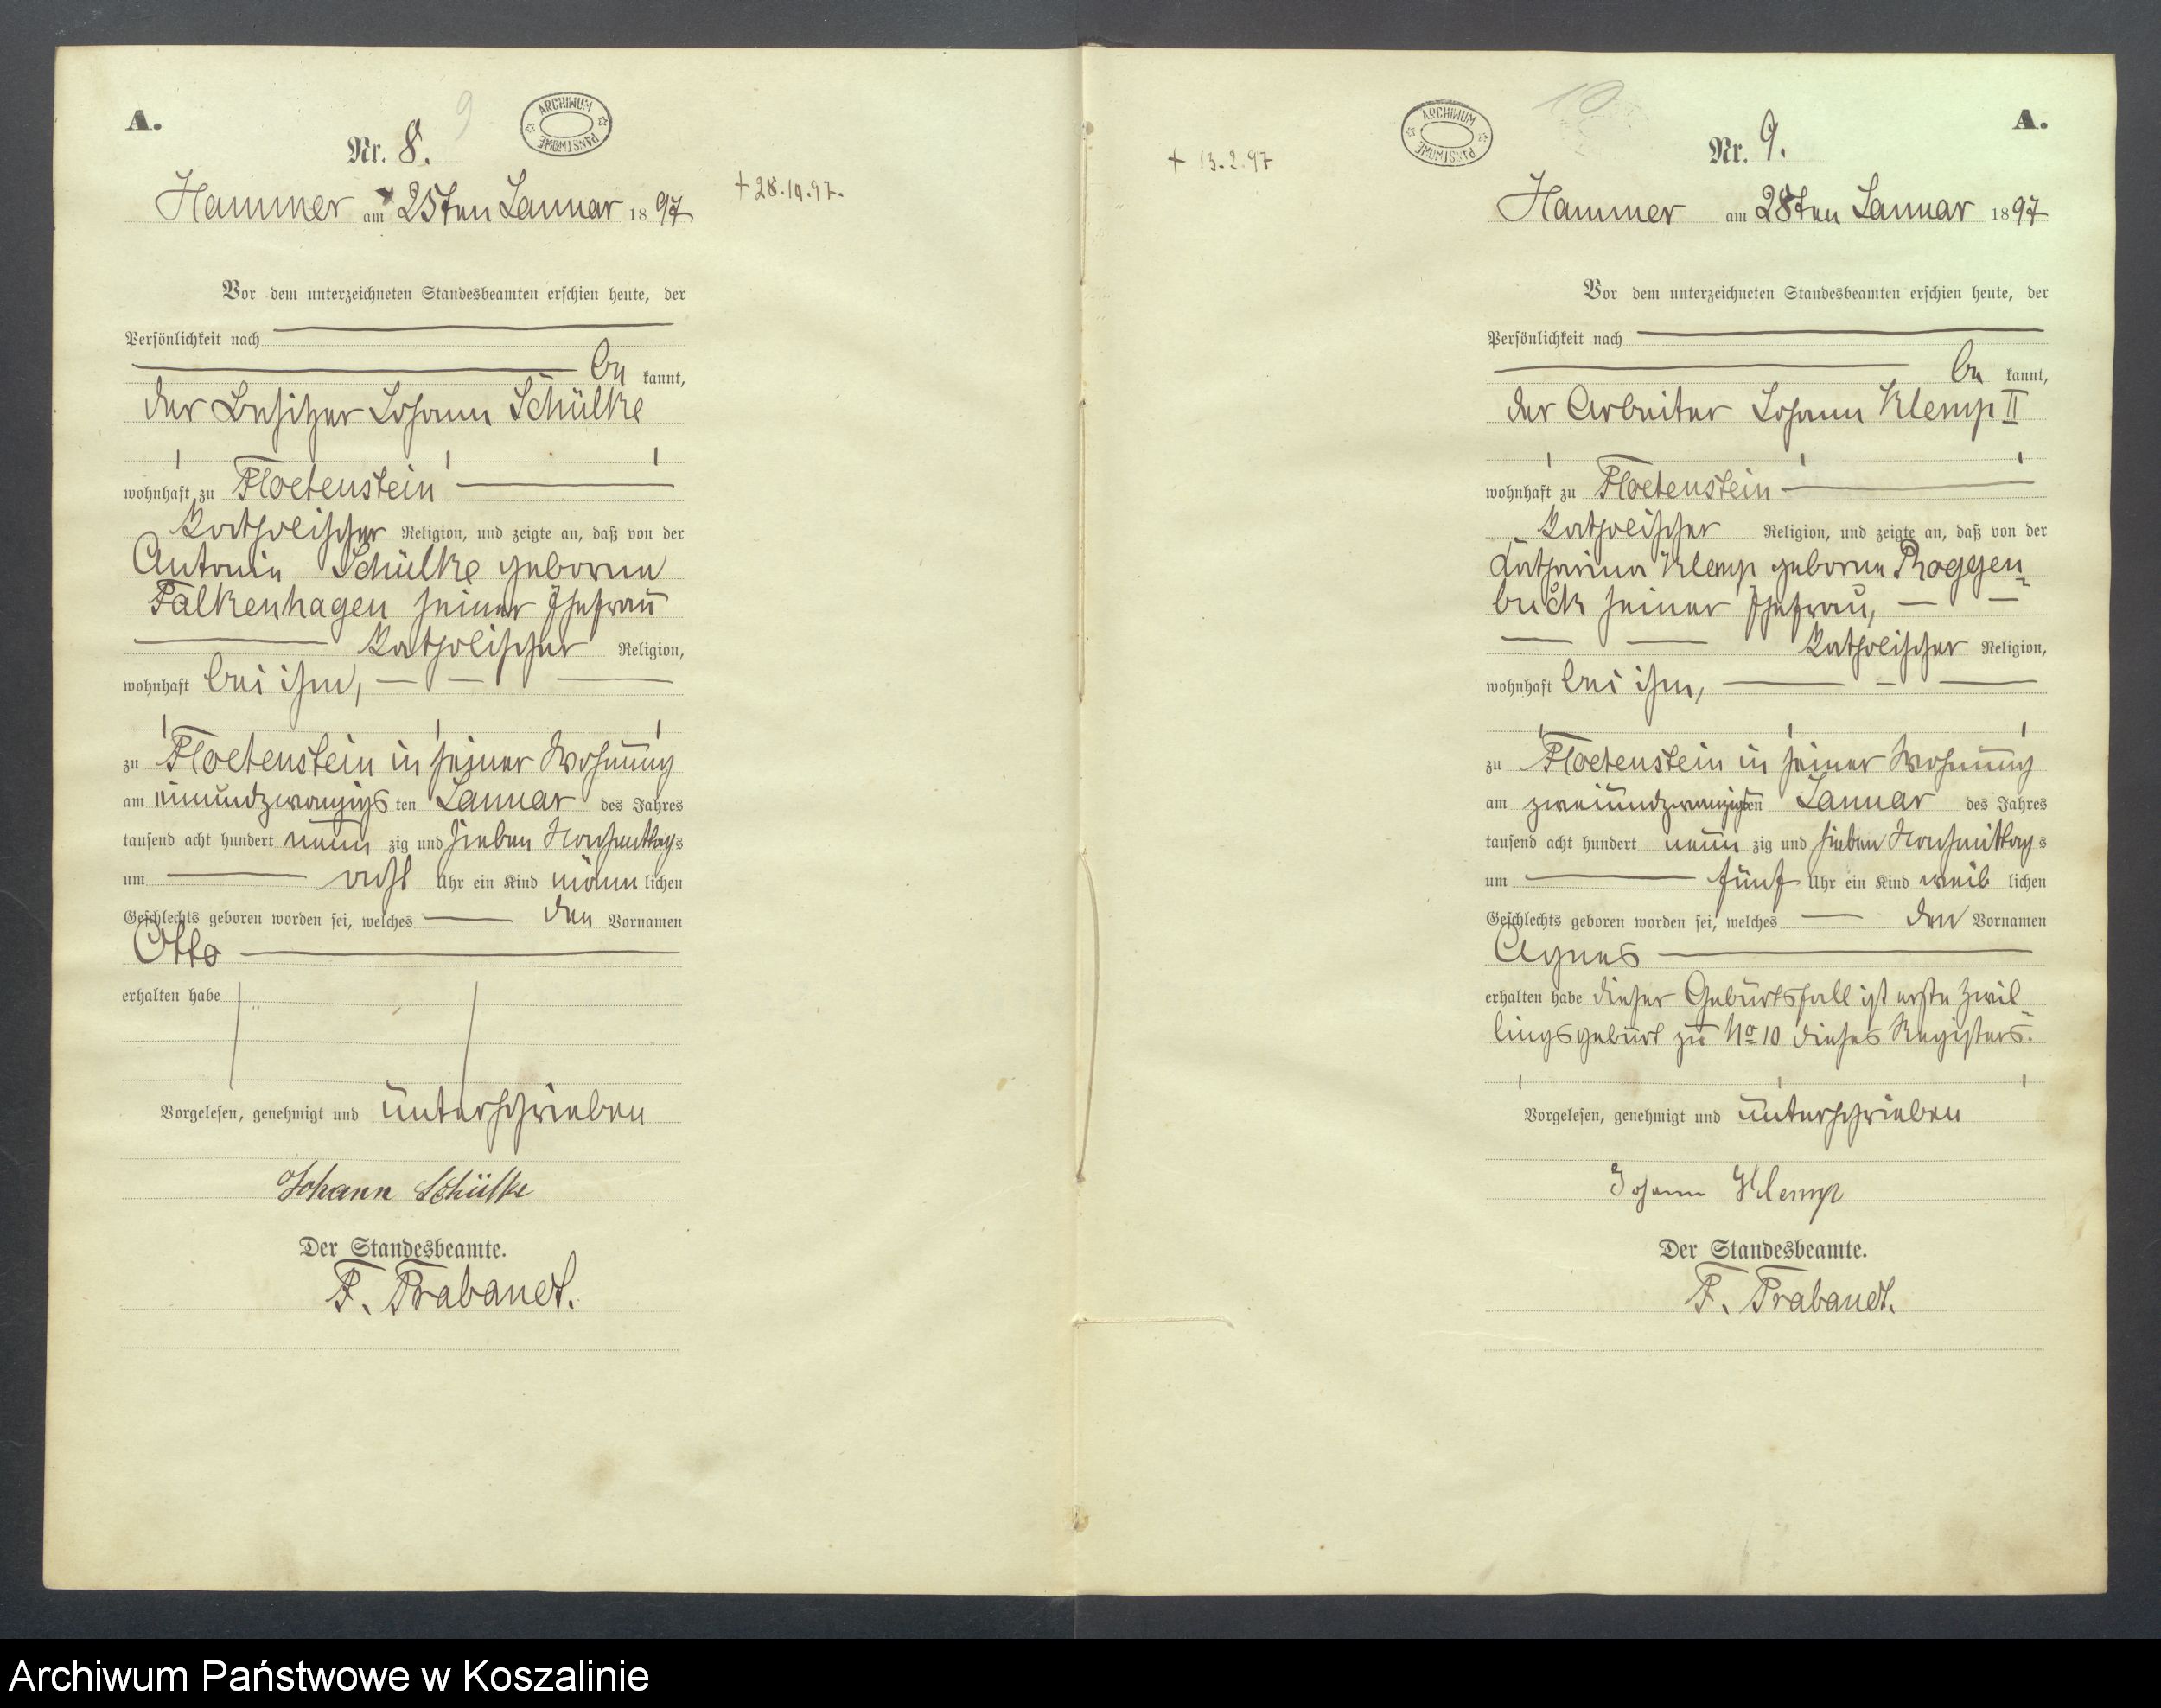 A.
9
ARCHIWUM PAŃSTWOWE
Nr. 8.
Hammer am 25ten Januar 1897
+ 28.10.97.
Vor dem unterzeichneten Standesbeamten erschien heute, der
Persönlichkeit nach
be kannt,
der Besitzer Johann Schülke
wohnhaft zu Floetenstein
katholischer Religion, und zeigte an, daß von der
Antonie Schülke geborne
Falkenhagen seiner Ehefrau
katholischer Religion,
wohnhaft bei ihm,
zu Floetenstein in seiner Wohnung
am einundzwanzigs ten Januar des Jahres
tausend acht hundert neun zig und sieben Nachmittags
um acht Uhr ein Kind männ lichen
Geschlechts geboren worden sei, welches den Vornamen
Otto
erhalten habe
Vorgelesen, genehmigt und unterschrieben
Johann Schülke
Der Standesbeamte.
F. Trabandt.
+ 13.2.97
ARCHIWUM PAŃSTWOWE
10
A.
Nr. 9.
Hammer am 28ten Januar 1897
Vor dem unterzeichneten Standesbeamten erschien heute, der
Persönlichkeit nach
be kannt,
der Arbeiter Johann Klemp II
wohnhaft zu Floetenstein
katholischer Religion, und zeigte an, daß von der
Katharina Klemp geborne Roggen
buck seiner Ehefrau,
katholischer Religion,
wohnhaft bei ihm,
zu Floetenstein in seiner Wohnung
am zweiundzwanzigsten Januar des Jahres
tausend acht hundert neun zig und sieben Nachmittags
um fünf Uhr ein Kind weib lichen
Geschlechts geboren worden sei, welches den Vornamen
Agnes
erhalten habe dieser Geburtsfall ist erste Zwil
lingsgeburt zu No 10 dieses Registers.
Vorgelesen, genehmigt und unterschrieben
Johann Klemp
Der Standesbeamte.
F. Trabandt.
Archiwum Państwowe w Koszalinie